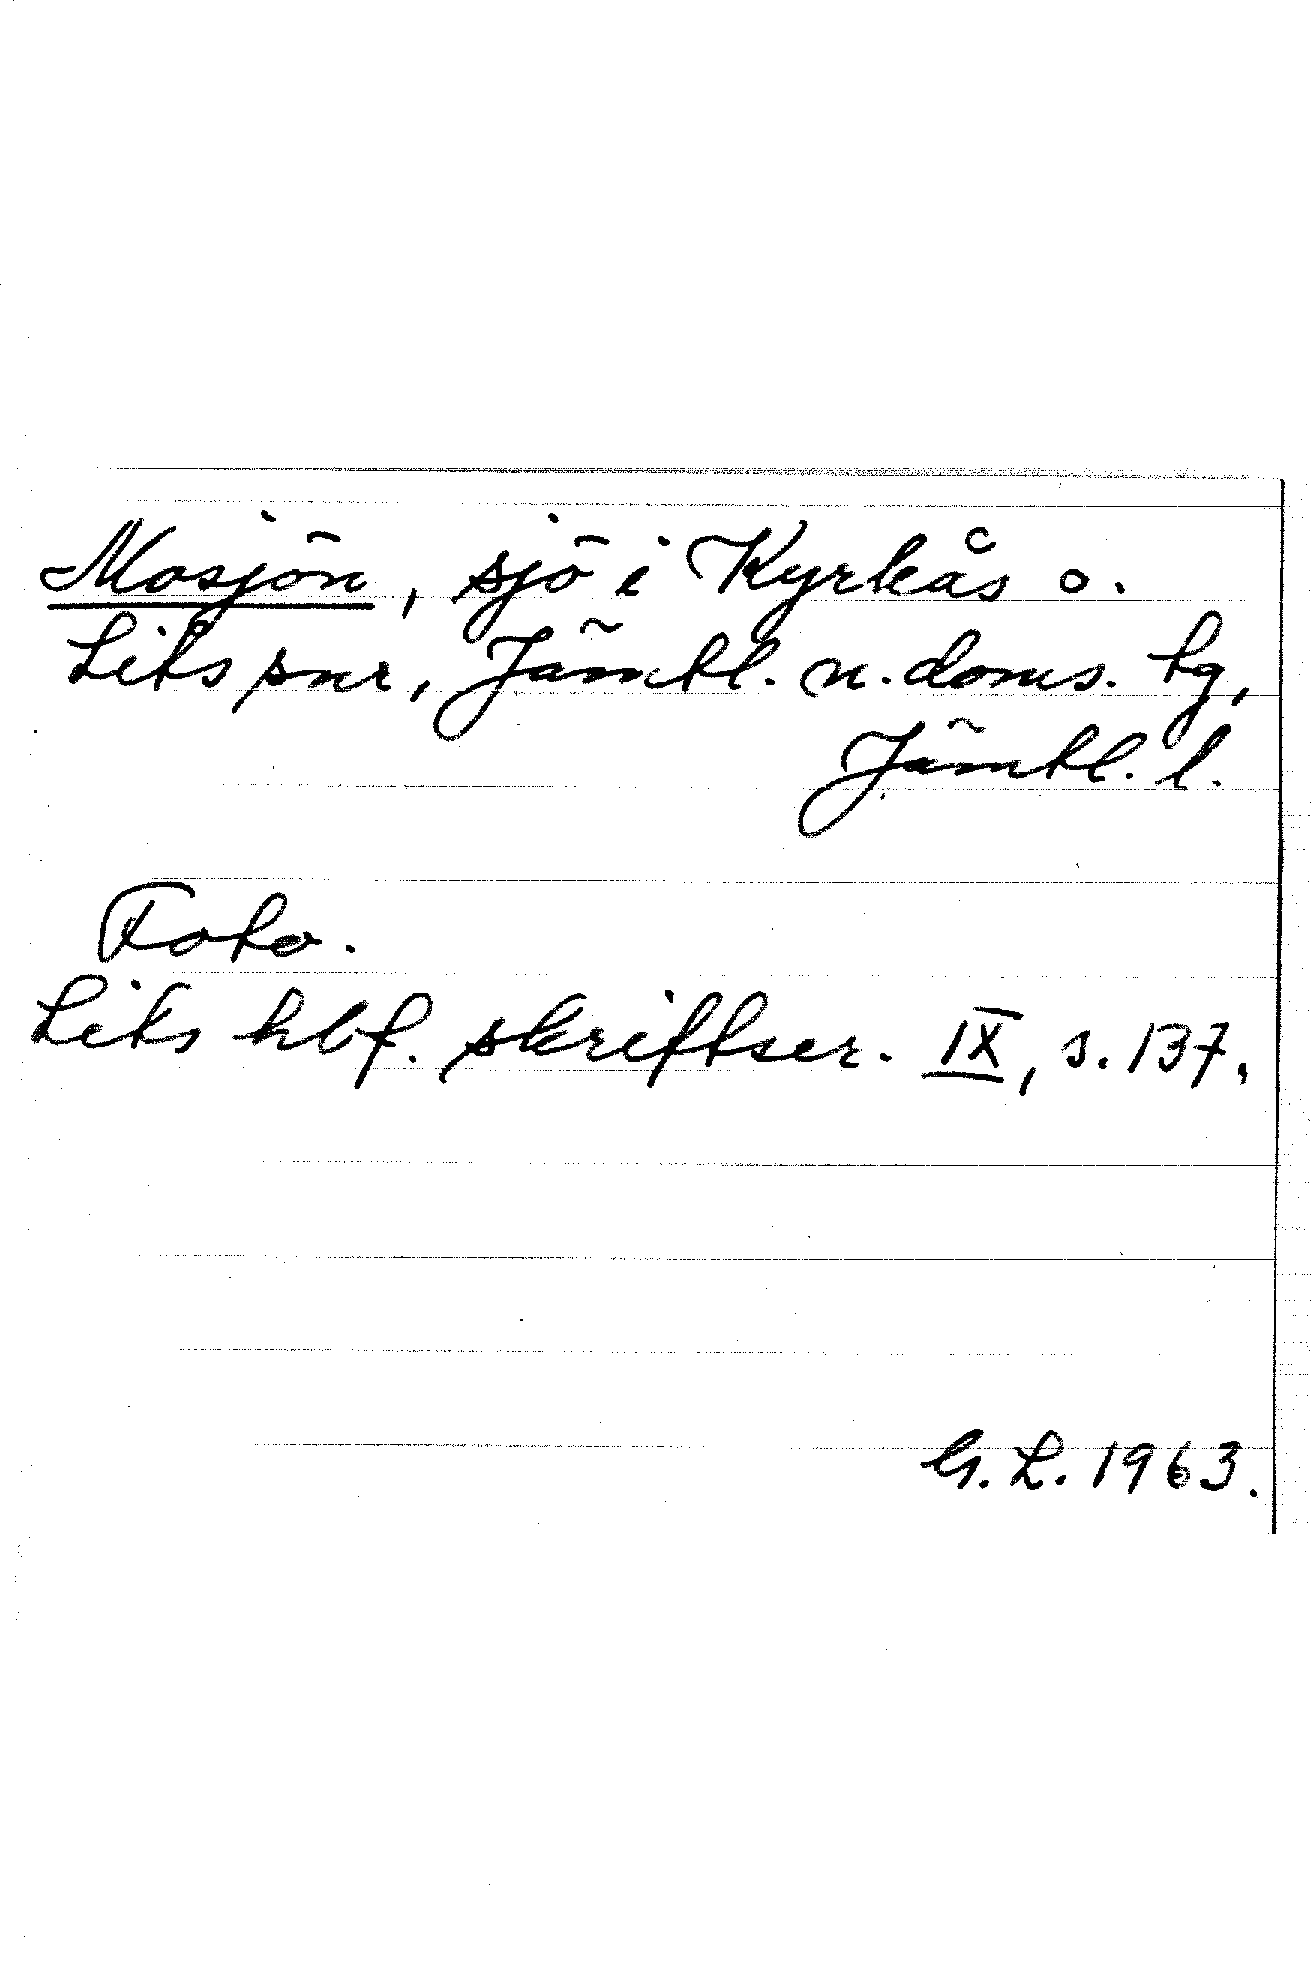 Mosjön, sjö i Kyrkås o.
Lits snr, Jämtl. n. doms. tg,
Jämtl. l.
Foto.
Lits hbf. skriftser. IX, s. 137.
G. L. 1963.